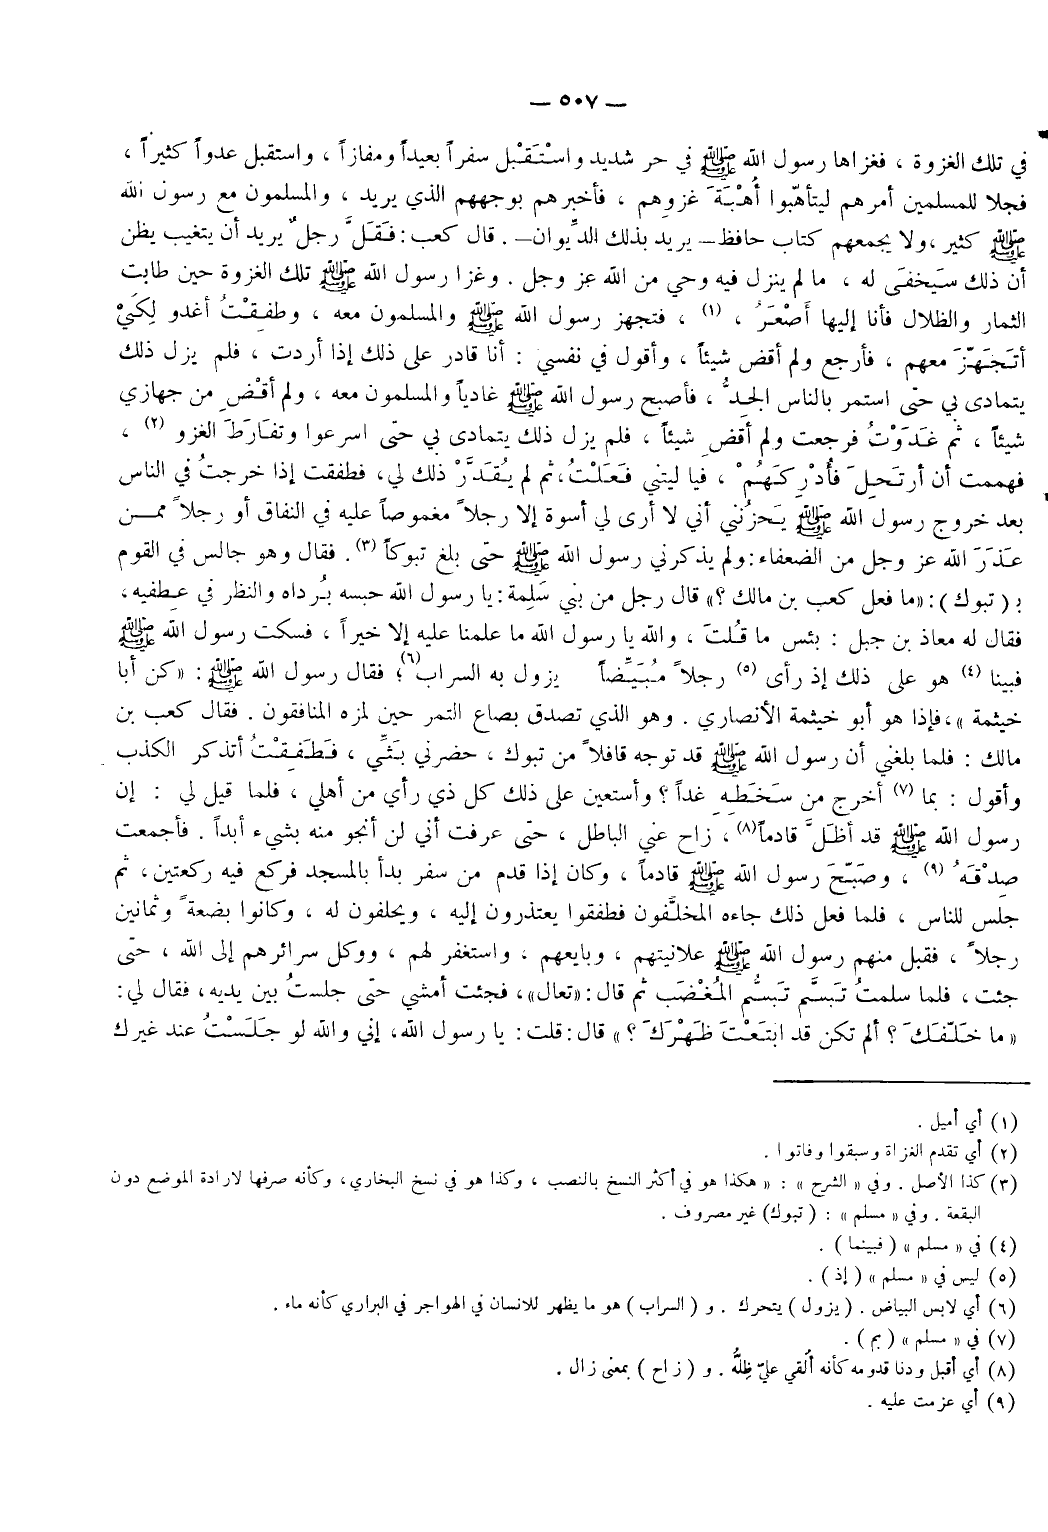 — ٥٠٧ —
في تلك الغزوة ، فغزاها رسول الله ﷺ في حر شديد واسْتَقْبل سفراً بعيداً ومفازاً ، واستقبل عدواً كثيراً ،
فجلا للمسلمين أمرهم ليتأهّبوا أُهْبَةَ غزوهم ، فأخبرهم بوجههم الذي يريد ، والمسلمون مع رسول الله
ﷺ كثير ،ولا يجمعهم كتاب حافظ – يريد بذلك الدِّيوان –. قال كعب : فَقَلَّ رجلٌ يريد أن يتغيب يظن
أن ذلك سَيَخفَى له ، ما لم ينزل فيه وحي من الله عز وجل . وغزا رسول الله ﷺ تلك الغزوة حين طابت
الثمار والظلال فأنا إليها أَصْعَرُ ، (١) ، فتجهز رسول الله ﷺ والمسلمون معه ، وطفِقْتُ أغدو لِكَيْ
أتجَهَّزَ معهم ، فأرجع ولم أقض شيئاً ، وأقول في نفسي : أنا قادر على ذلك إذا أردت ، فلم يزل ذلك
يتمادى بي حتّى استمر بالناس الجِدُّ ، فأصبح رسول الله ﷺ غادياً والمسلمون معه ، ولم أقْضِ من جهازي
شيئاً ، ثم غَدَوْتُ فرجعت ولم أقضِ شيئاً ، فلم يزل ذلك يتمادى بي حتّى اسرعوا وتفَارَطَ الغزو (٢) ،
فهممت أن أرتَحِلَ فأُدْرِكَهُمْ ، فيا ليتني فَعَلْتُ، ثم لم يُقَدَّرْ ذلك لي، فطفقت إذا خرجتُ في الناس
بعد خروج رسول الله ﷺ يَحزُنني أني لا أرى لي أسوة إلا رجلاً مغموصاً عليه في النفاق أو رجلاً ممن
عذَرَ الله عز وجل من الضعفاء : ولم يذكرني رسول الله ﷺ حتّى بلغ تبوكاً (٣). فقال وهو جالس في القوم
بـ ( تبوك ) : «ما فعل كعب بن مالك ؟» قال رجل من بني سَلِمة : يا رسول الله حبسه بُرداه والنظر في عِطفيه،
فقال له معاذ بن جبل : بئس ما قُلتَ ، والله يا رسول الله ما علمنا عليه إلا خيراً ، فسكت رسول الله ﷺ
فبينا (٤) هو على ذلك إذ رأى (٥) رجلاً مُبَيِّضاً يزول به السراب(٦)؛ فقال رسول الله ﷺ : «كن أبا
خيثمة »، فإذا هو أبو خيثمة الأنصاري . وهو الذي تصدق بصاع التمر حين لمزه المنافقون . فقال كعب بن
مالك : فلما بلغني أن رسول الله ﷺ قد توجه قافلاً من تبوك ، حضرني بَثِّي ، فَطَفِقْتُ أتذكر الكذب
وأقول : بما (٧) أخرج من سَخَطِهِ غداً ؟ وأستعين على ذلك كل ذي رأي من أهلي ، فلما قيل لي : إن
رسول الله ﷺ قد أظلَّ قادماً(٨)، زاح عني الباطل ، حتّى عرفت أني لن أنجو منه بشيء أبداً . فأجمعت
صِدْقَهُ (٩) ، وصَبّحَ رسول الله ﷺ قادماً ، وكان إذا قدم من سفر بدأ بالمسجد فركع فيه ركعتين، ثم
جلس للناس ، فلما فعل ذلك جاءه المخلَّفون فطفقوا يعتذرون إليه ، ويحلفون له ، وكانوا بضعةً وثمانين
رجلاً ، فقبل منهم رسول الله ﷺ علانيتهم ، وبايعهم ، واستغفر لهم ، ووكل سرائرهم إلى الله ، حتّى
جئت ، فلما سلمتُ تبَسَّم تبَسُّم المُغْضَب ثم قال : «تعال»، فجئت أمشي حتّى جلستُ بين يديه ، فقال لي :
« ما خَلّفَكَ ؟ ألم تكن قد ابتَعْتَ ظَهْرَكَ ؟ » قال : قلت : يا رسول الله، إني والله لو جَلَسْتُ عند غيرك
(١) أي أميل .
(٢) أي تقدم الغزاة وسبقوا وفاتوا .
(٣) كذا الأصل . وفي « الشرح » : « هكذا هو في أكثر النسخ بالنصب ، وكذا هو في نسخ البخاري، وكأنه صرفها لارادة الموضع دون
البقعة . وفي « مسلم » : ( تبوك) غير مصروف .
(٤) في « مسلم » ( فبينما ) .
(٥) ليس في « مسلم » ( إذ ) .
(٦) أي لابس البياض . ( يزول ) يتحرك . و ( السراب ) هو ما يظهر للانسان في الهواجر في البراري كأنه ماء .
(٧) في « مسلم » ( بم ) .
(٨) أي أقبل ودنا قدومه كأنه أُلقي عليّ ظِلُّهُ . و ( زاح ) بمعنى زال .
(٩) أي عزمت عليه .